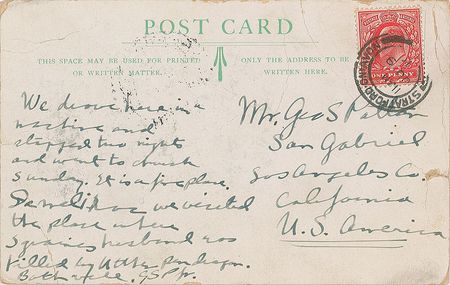 POST CARD
THIS SPACE MAY BE USED FOR PRINTED
OR WRITTEN MATTER.
ONLY THE ADDRESS TO BE
WRITTEN HERE.
ONE PENNY
STRATFORD-ON-AVON
We drove here in a
machine and
stopped two nights
and went to church
Sunday. It is a fine place.
we visited
the place where
husband was
killed by Uther Pendragon.
GSP Jr.
Mr. Geo S Patton
San Gabriel
Los Angeles Co.
California
U.S. America